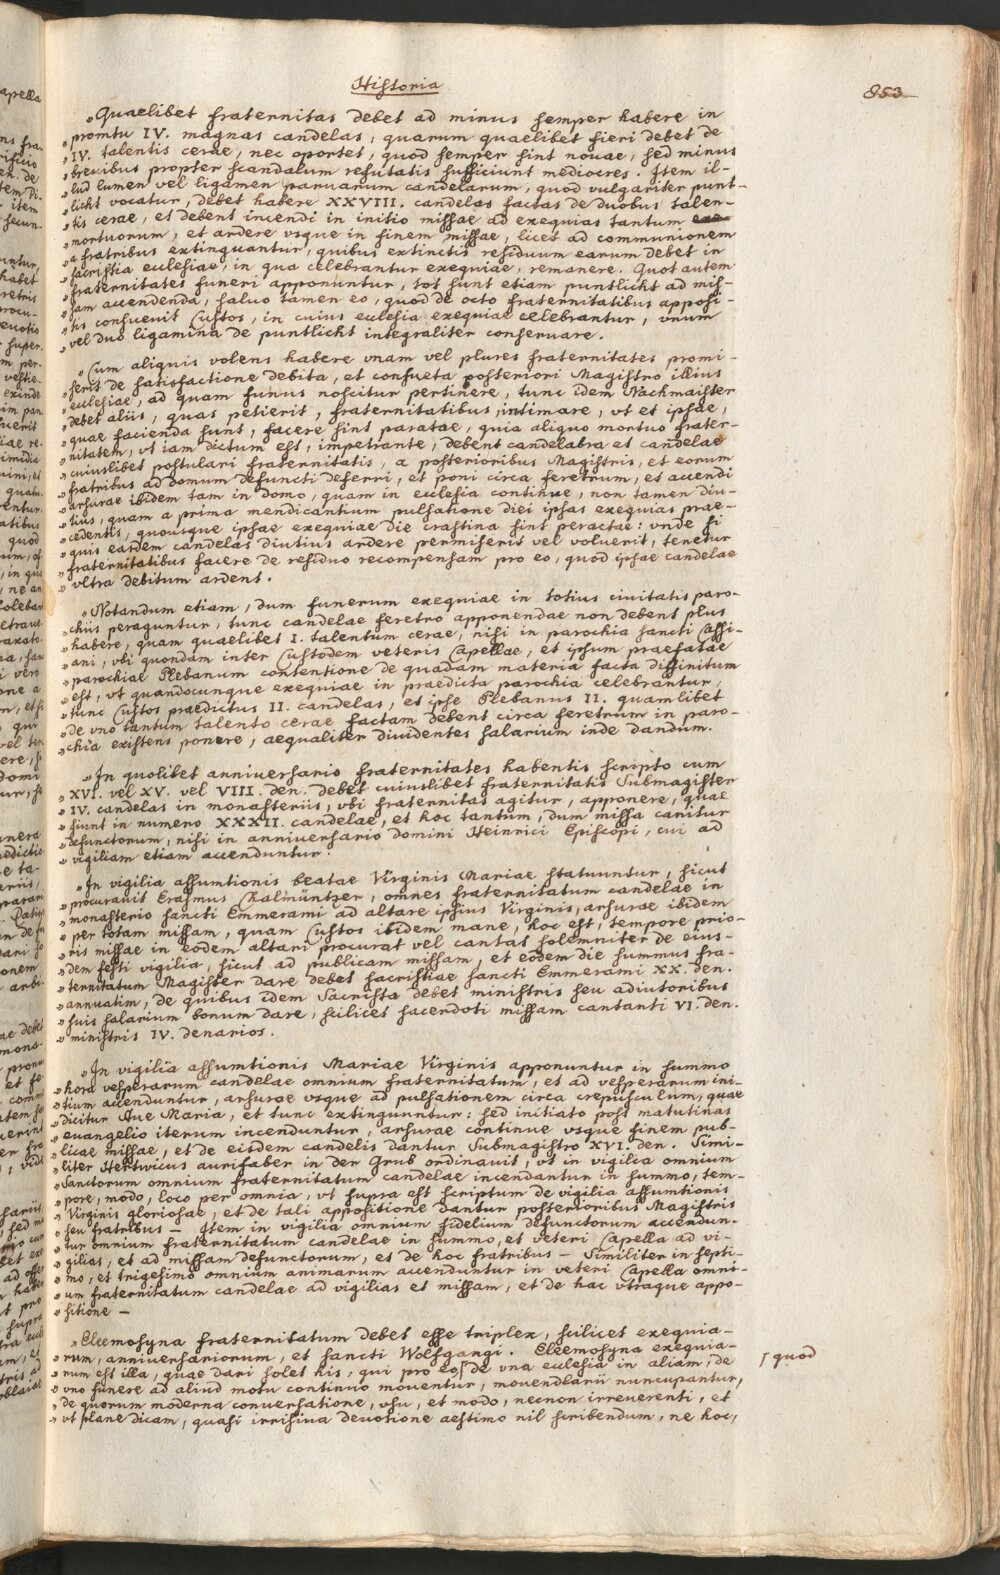 Historia
853
„Quaelibet fraternitas debet ad minus semper habere in
„promtu IV. magnas candelas, quarum quaelibet fieri debet de
„IV. talentis cerae, nec oportet, quod semper sint nouae, sed minus
„breuibus propter scandalum refutatis sufficiunt mediocres. Item il-
„lud lumen vel ligamen paruarum candelarum, quod vulgariter punt-
„licht vocatur, debet habere XXVIII. candelas factas de duobus talen-
„tis cerae, et debent incendi in initio missae ad exequias tantum
„mortuorum, et ardere vsque in finem missae, licet ad communionem
„a fratribus extinguantur, quibus extinctis residuum earum debet in
„sacristia ecclesiae, in qua celebrantur exequiae, remanere. Quot autem
„fraternitates funeri apponuntur, tot sunt etiam puntlicht ad mis-
„sam accendenda, saluo tamen eo, quod de octo fraternitatibus apposi-
„tis consueuit Custos, in cuius ecclesia exequiae celebrantur, vnum
„vel duo ligamina de puntlicht integraliter conseruare.
„Cum aliquis volens habere vnam vel plures fraternitates promi-
„serit de satisfactione debita, et consueta posteriori Magistro illius
„ecclesiae, ad quam funus noscitur pertinere, tunc idem Nachmaister
„debet aliis, quas petierit, fraternitatibus, intimare, vt et ipsae,
„quae facienda sunt, facere sint paratae, quia aliquo mortuo frater-
„nitatem, vt iam dictum est, impetrante, debent candelabra et candelae
„cuiuslibet postulari fraternitatis, a posterioribus Magistris, et eorum
„fratribus ad domum defuncti deferri, et poni circa feretrum, et accendi
„arsurae ibidem tam in domo, quam in ecclesia continue, non tamen diu-
„tius, quam a prima mendicantium pulsatione diei ipsas exequias prae-
„cedentis, quousque ipsae exequiae die crastina sint peractae: vnde si
„quis easdem candelas diutius ardere permiserit vel voluerit, tenetur
„fraternitatibus facere de residuo recompensam pro eo, quod ipsae candelae
„vltra debitum ardent.
„Notandum etiam, dum funerum exequiae in totius ciuitatis paro-
„chiis peraguntur, tunc candelae feretro apponendae non debent plus
„habere, quam quaelibet I. talentum cerae, nisi in parochia sancti Cassi-
„ani, vbi quondam inter Custodem veteris Capellae, et ipsum praefatae
„parochial Plebanum contentione de quadam materia facta diffinitum
„est, vt quandocunque exequiae in praedicta parochia celebrantur,
„tunc Custos praedictus II. candelas, et ipse Plebanus II. quamlibet
„de vno tantum talento cerae factam debent circa feretrum in paro-
„chia existens ponere, aequaliter diuidentes salarium inde dandum.
„In quolibet anniuersario fraternitates habentis scripto cum
„XVI. vel XV. vel VIII. den. debet cuiuslibet fraternitatis Submagister
„IV. candelas in monasteriis, vbi fraternitas agitur, apponere, quae
„sunt in numero XXXII. candelae, et hoc tantum, dum missa canitur
„defunctorum, nisi in anniuersario domini Heinrici Episcopi, cui ad
„vigiliam etiam accenduntur.
„In vigilia assumtionis beatae Virginis Mariae statuuntur, sicut
„procurauit Erasmus Kalmüntzer, omnes fraternitatum candelae in
„monasterio sancti Emmerami ad altare ipsius Virginis, arsurae ibidem
„per totam missam, quam Custos ibidem mane, hoc est, tempore prio-
„ris missae in eodem altari procurat vel cantat solemniter de eius-
„dem festi vigilia, sicut ad publicam missam, et eodem die summus fra-
„ternitatum Magister dare debet sacristiae sancti Emmerami XX. den.
„annuatim, de quibus idem Sacrista debet ministris seu adiutoribus
„suis salarium bonum dare, scilicet sacerdoti missam cantanti VI. den.
„ministris IV. denarios.
„In vigilia assumtionis Mariae Virginis apponuntur in summo
„hora vesperarum candelae omnium fraternitatum, et ad vesperarum ini-
„tium accenduntur, arsurae vsque ad pulsationem circa crepusculum, quae
„dicitur Aue Maria, et tunc extinguuntur: sed initiato post matutinas
„euangelio iterum incenduntur, arsurae continue vsque finem pub-
„licae missae, et de eisdem candelis dantur Submagistro XVI. den. Simi-
„liter Hertwicus aurifaber in der Grub ordinauit, vt in vigilia omnium
„Sanctorum omnium fraternitatum candelae incendantur in summo, tem-
„pore, modo, loco per omnia, vt supra est scriptum de vigilia assumtionis
„Virginis gloriosae, et de tali appositione dantur posterioribus Magistris
„seu fratribus — Item in vigilia omnium fidelium defunctorum accendun-
„tur omnium fraternitatum candelae in summo, et veteri Capella ad vi-
„gilias, et ad missam defunctorum, et de hoc fratribus — Similiter in septi-
„mo, et trigesimo omnium animarum accenduntur in veteri Capella omni-
„um fraternitatum candelae ad vigilias et missam, et de hac vtraque appo-
„sitione —
„Eleemosyna fraternitatum debet esse triplex, scilicet exequia-
„rum, anniuersariorum, et sancti Wolfgangi. Eleemosyna exequia-
„rum est illa, quae dari solet his, qui pro eo ſ de vna ecclesia in aliam, de
ſ quod
„vno funere ad aliud motu continuo mouentur, mouendlarii nuncupantur,
„de quorum moderna conuersatione, vsu, et modo, necnon irreuerenti, et
„vt plane dicam, quasi irrisiua deuotione aestimo nil scribendum, ne hoc,